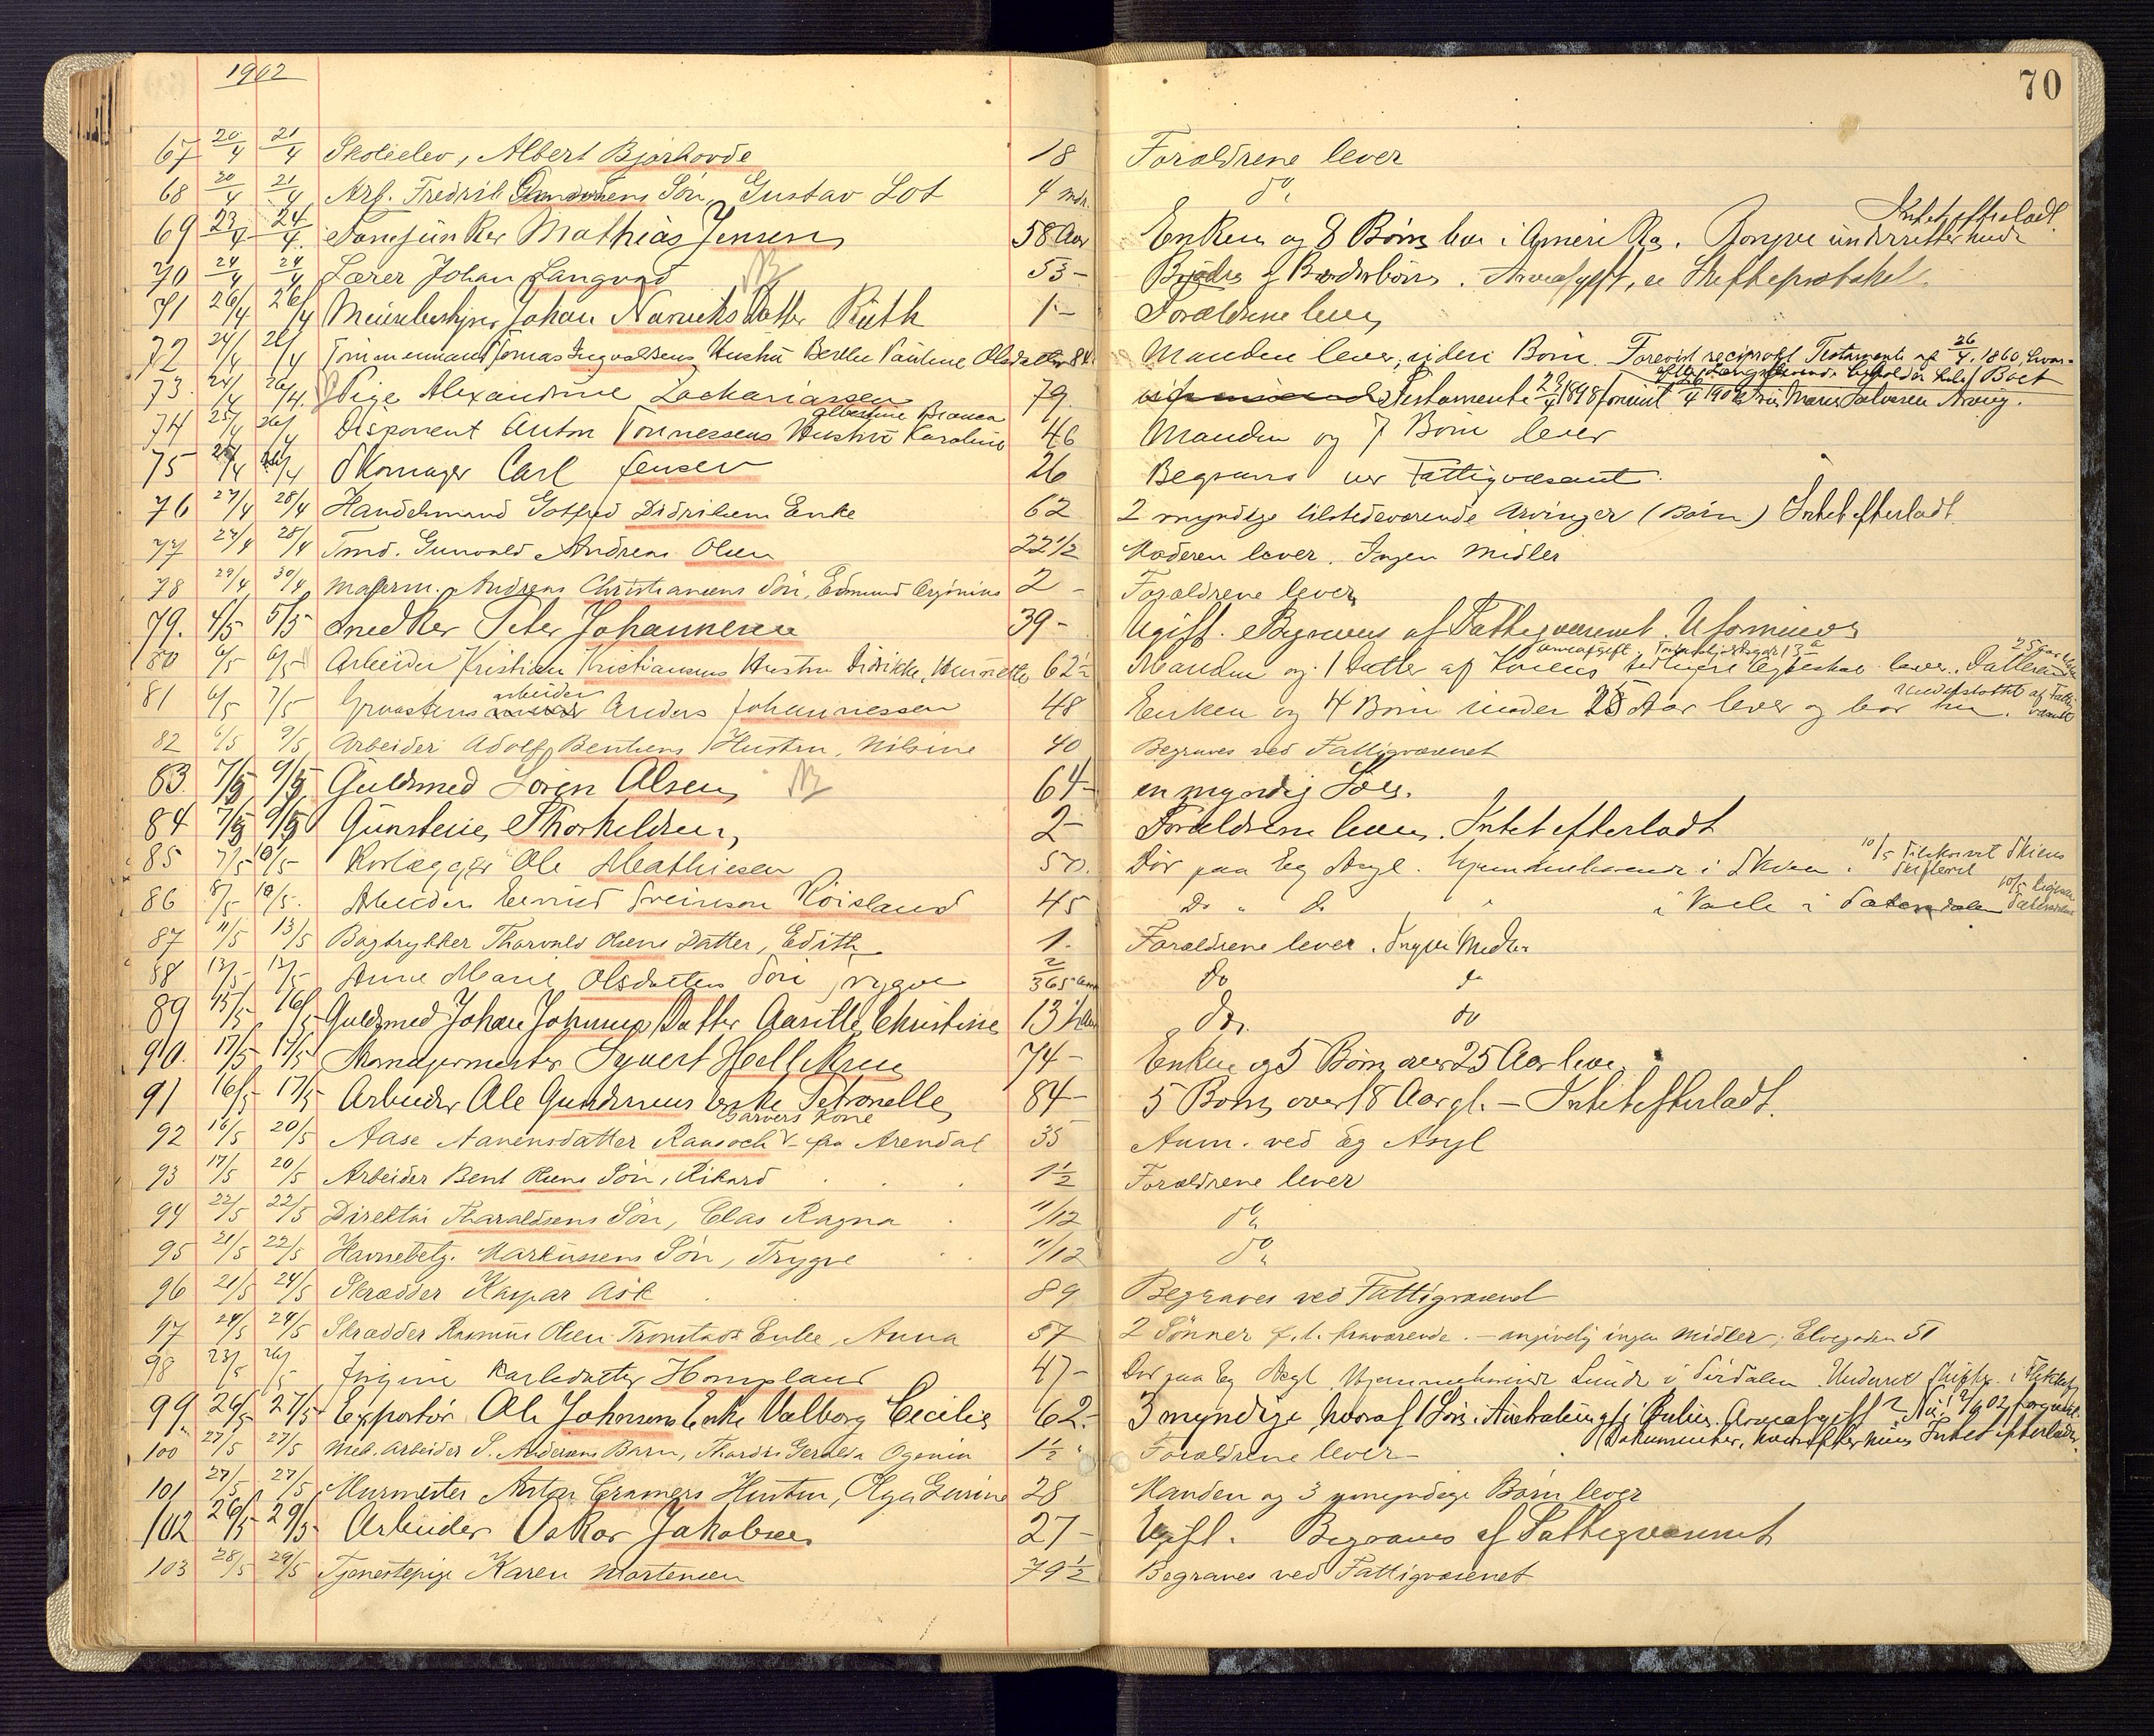 1902
70
67 20/4 21/4 Skoleelev, Albert Bjorhovde 18 Forældrene lever
68 20/4 21/4 Arb. Fredrik Gundersens Søn, Gustav Lot 4 mdr. do
Intet efterladt.
69 23/4 24/4. Mathias Jensen 58 Aar Enken og 8 Børn lever i Amerika.
70 24/4 24/4 Lærer Johan Langvad 53 - Brødre og Broderbørn. Arveafgift, se Skifteprotokol.
71 26/4 26/4 Johan Narviks Datter Ruth 1 - Forældrene lever
72 24/4 26/4 Tømmermand Tomas Ingvaldsens Hustru Berthe Pauline Olsdatter 84 Manden lever, uden Børn. Forevist reciprokt Testamente af 26/4. 1860, hvor-
efter Længstlevende beholder hele Boet
73. 24/4 26/4 Pige Alexandrine Zachariassen 79 Testamente 23/4 1898
Albertine Bianca
74 25/4 26/4 Disponent Anton Tønnessens Hustru Karoline 46 Manden og 7 Børn lever
75 26/4 Skomager Carl Jensen 26 Begraves ved Fattigvæsenet.
76 27/4 28/4 Handelsmand Gotfred Didriksens Enke 62 2 myndige tilstedeværende Arvinger (Børn) Intet efterladt.
77 27/4 28/4 Tmd. Gunvald Andreas Olsen 22 1/2 Moderen lever. Ingen Midler
78 29/4 30/4 Andreas Christiansens Søn, Edmund 2 - Forældrene lever
79. 4/5 5/5 Snedker Peter Johannesen 39 - Ugift. Begraves af Fattigvæsenet. Uformuende
Arveafgift,
80 6/5 6/5 Arbeider Kristian Kristiansens Hustru Didrikke, Henriette 62 1/2 Manden og 1 Datter af Konens tidligere Ægteskab lever.
arbeider
81 6/5 7/5 Anders Johannessen 48 Enken og 4 Børn under 18 Aar lever og bor her. Understøttet af Fattigvæsenet
82 6/5 9/5 Arbeider Adolf Bentsens Hustru, Nilsine 40 Begraves ved Fattigvæsenet
83. 7/5 9/5 Guldsmed Søren Olsen 64 - en myndig Søn.
84 7/5 9/5 Gunstein Thorkildsen, 2 - Forældrene lever. Intet efterladt
85 7/5 10/5 Ole Mathiesen 50. Dør paa Eg Asyl. Hjemmehørende i Skien. 10/5 Tilskrevet Skiens Skifteret
86 8/5 10/5. Eivind Sveinson Koisland 45 Do " do " i Valle i Sætersdalen
87 11/5 13/5 Bogtrykker Thorvald Olsens Datter, Edith 1. Forældrene lever. Ingen Midler
88 12/5 12/5 Anne Marie Olsdatters Søn Trygve 2/365 Aar do do
89 15/5 16/5 Guldsmed Johan Johnsens Datter Aasille Christine 13 1/2 Aar do. do
90. 17/5 17/5 Skomagermester Syvert Helliksen 74 - Enken og 5 Børn over 25 Aar lever
91 16/5 17/5 Arbeider Ole Gundersens Enke Petronelle 84 - 5 Børn over 18 Aar gl. - Intet efterladt.
Garvers Kone
92 16/5 20/5 Aase Nanensdatter Ranvoch fra Arendal 35 Anm. ved Eg Asyl
93 17/5 20/5 Arbeider Bent Olsens Søn, Rikard 1 1/2 Forældrene lever
94 22/5 22/5 Direktør Tharaldsens Søn, Clas Ragna 11/12 do
95 21/5 22/5 Havnebetj. Markussens Søn, Trygve 11/12 do
96 21/5 24/5 Skrædder Kaspar Ask 89 Begraves ved Fattigvæsenet
97 24/5 24/5 Skrædder Rasmus Olsen Tronstads Enke, Anna 57 2 Sønner p.t. fraværende. - angivelig ingen Midler, Elvegaden 51
98 23/5 26/5 Jørgine Karlsdatter Hompland 47 - Dør paa Eg Asyl. Hjemmehørende Lunde i Sirdalen.
99. 26/5 27/5 Exportør Ole Johnsens Enke Valborg Cecilie 62. - 3 myndige, hvoraf 1 Søn i Australien
Dokumenter, hvorefter Intet efterladt.
100 27/5 27/5 Mek. arbeider S. Andersens Barn, Thordis Geralda 1 1/2 Forældrene lever -
101 27/5 27/5 Murmester Anton Cramers Hustru, Olga Gusine 28 Manden og 3 umyndige Børn lever
102 26/5 29/5 Arbeider Oskar Jakobsen 27 - Ugift. Begraves af Fattigvæsenet
103 28/5 29/5 Tjenestepige Karen Mortensen 79 1/2 Begraves ved Fattigvæsenet